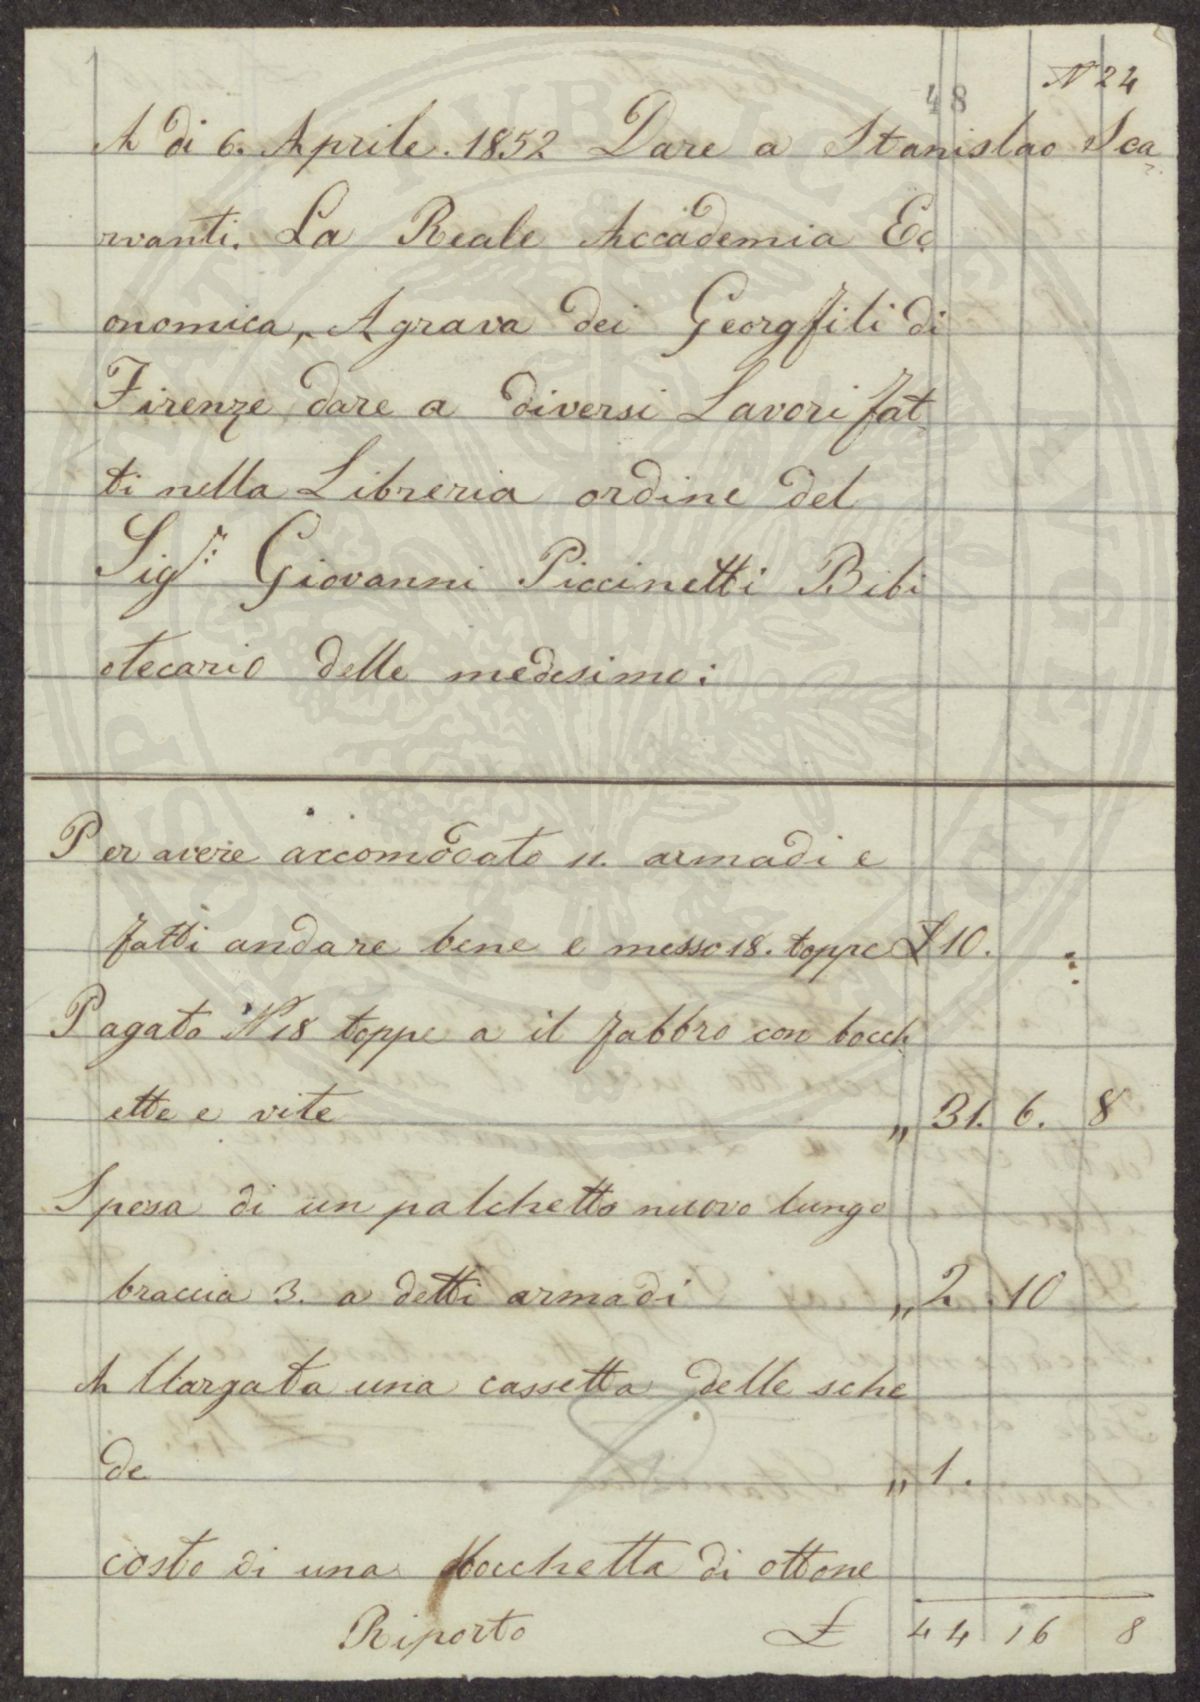 N 24
48
A di 6. Aprile. 1852 Dare a Stanislao Sca
rvanti. La Reale Accademia Ec
onomica, Agrava dei Georgfili di
Firenze dare a diversi Lavori fat
ti nella Libreria ordine del
Sig.r Giovanni Piccinetti Bibi
otecario delle medesimo:
Per avere accomodato 11. armadi e
fatti andare bene e messo 18. toppe £ 10. :
Pagato N 18 toppe a il fabbro con bocch
ette e vite „ 31. 6. 8
Spesa di un palchetto nuovo lungo
braccia 3. a detti armadi „ 2. 10
Allargata una cassetta delle sche
de „ 1.
costo di una bocchetta di ottone
Riporto £ 44 16 8